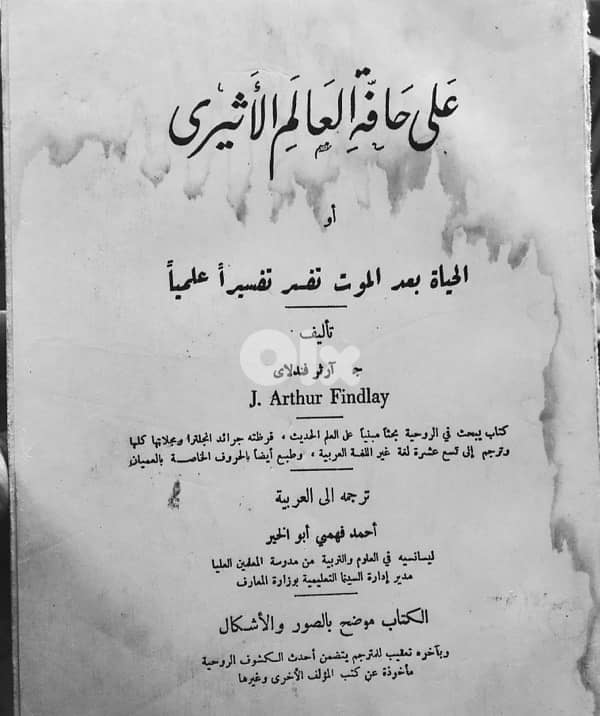 على حافة العالم الأثيرى
أو
الحياة بعد الموت تفسر تفسيراً علمياً
تأليف
ج آرثر فندلاى
J. Arthur Findlay
كتاب يبحث في الروحية بحثاً مبنياً على العلم الحديث ، قرظته جرائد انجلترا ومجلاتها كلها
وترجم إلى تسع عشرة لغة غير اللغة العربية ، وطبع أيضاً بالحروف الخاصة بالعميان
ترجمه الى العربية
أحمد فهمي أبو الخير
ليسانسيه في العلوم والتربية من مدرسة المعلمين العليا
مدير إدارة السينما التعليمية بوزارة المعارف
الكتاب موضح بالصور والأشكال
وبآخره تعقيب للمترجم يتضمن أحدث الكشوف الروحية
مأخوذة عن كتب المؤلف الأخرى وغيرها
olx